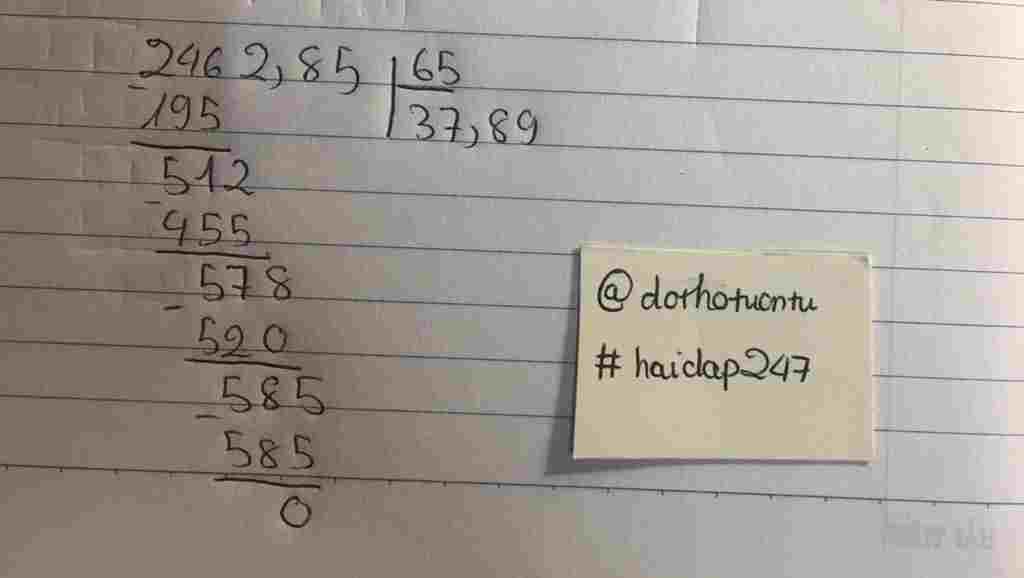 2462,85 65
- 195 37,89
512
- 455
578
- 520
585
- 585
0
@dorhotuontu
#haidap247